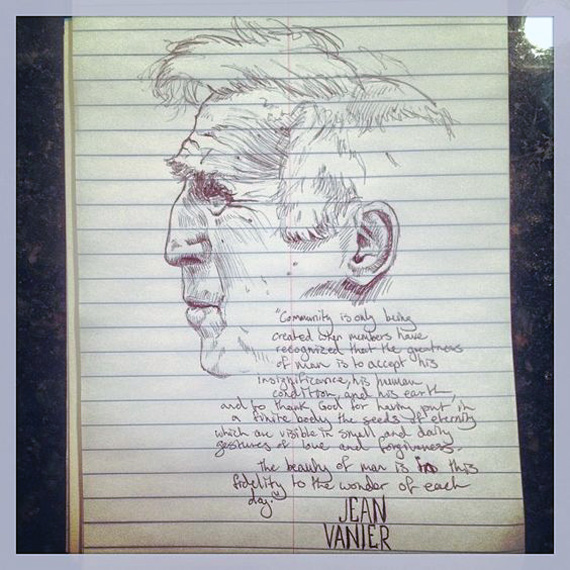 "Community is only being
created when members have
recognized that the greatness
of man is to accept his
insignificance, his human
condition, and his earth,
and to thank God for having put in
a finite body the seeds of eternity
which are visible in small and daily
gestures of love and forgiveness.
The beauty of man is in this
fidelity to the wonder of each
day."
JEAN
VANIER